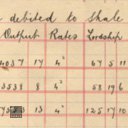 debited to Shale
Output Rates Lordship
4037 17 4ᵈ 67 5 11
3539 8 4ᵈ 58 19 6
13 4ᵈ 125 17 10